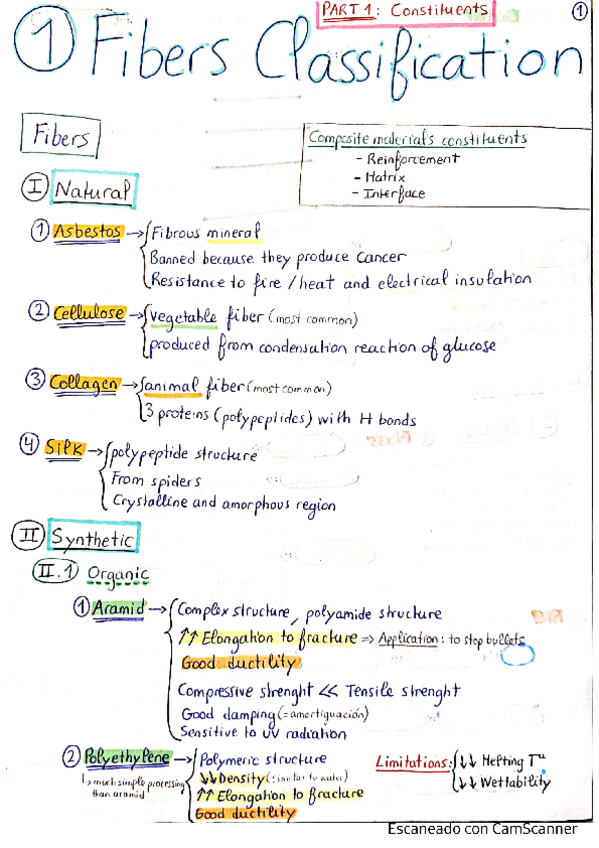 PART 1: Constituents
1
1 Fibers Classification
Fibers
Composite material's constituents
- Reinforcement
- Matrix
- Interface
I Natural
1 Asbestos → Fibrous mineral
Banned because they produce cancer
Resistance to fire / heat and electrical insulation
2 Cellulose → vegetable fiber (most common)
produced from condensation reaction of glucose
3 Collagen → animal fiber (most common)
3 proteins (polypeptides) with H bonds
4 Silk → polypeptide structure
From spiders
Crystalline and amorphous region
II Synthetic
II.1 Organic
1 Aramid → Complex structure, polyamide structure
↑↑ Elongation to fracture ⇒ Application: to stop bullets
Good ductility
Compressive strenght << Tensile strenght
Good damping (= amortiguación)
Sensitive to UV radiation
2 Polyethylene → Polymeric structure
↳ much simple processing than aramid
↓↓ Density (similar to water)
↑↑ Elongation to fracture
Good ductility
Limitations: ↓↓ Melting Tª
↓↓ Wettability
Escaneado con CamScanner